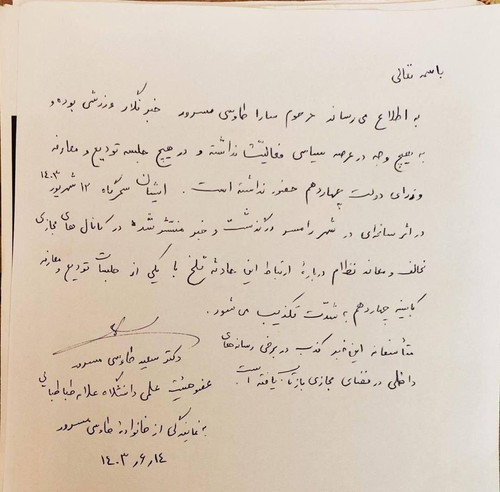 باسمه تعالی
به اطلاع می رساند مرحوم سارا طاوسی مسرور خبرنگار ورزشی بوده و
به هیچ وجه در عرصه سیاسی فعالیّت نداشته و در هیچ جلسه تودیع و معارفه
وزرای دولت چهاردهم حضور نداشته است. ایشان سحرگاه ۱۲ شهریور ۱۴۰۳
در اثر سانحه‌ای در شهر رامسر درگذشت و خبر منتشر شده در کانال های مجازی
مخالف و معاند نظام درباره ارتباط این حادثه تلخ با یکی از جلسات تودیع و معارفه
کابینه چهاردهم به شدّت تکذیب می شود.
متأسفانه این خبر کذب در برخی رسانه های
داخلی در فضای مجازی بازتاب یافته است.
دکتر سعید طاوسی مسرور
عضو هیئت علمی دانشگاه علامه طباطبایی
به نمایندگی از خانواده طاوسی مسرور
۱۴۰۳٫۶٫۱۴